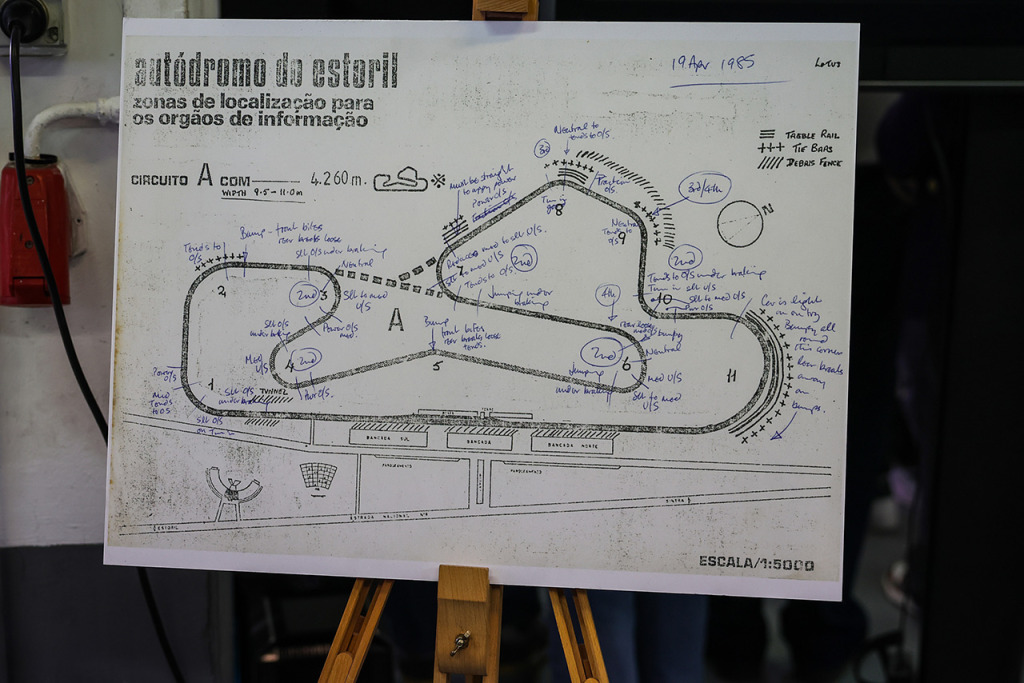 autódromo do estoril
zonas de localização para
os orgãos de informação
19 Apr 1985
LOTUS
TREBLE RAIL
TIE BARS
DEBRIS FENCE
CIRCUITO A COM 4.260 m.
WIDTH 9.5 - 11.0 m
N
Neutral to
tends to O/S.
3rd
Must be straight
to apply power
Power O/S
Traction
O/S.
Turn in
8
3rd/4th
Neutral
Tends to
O/S
9
Tends to
O/S
Bump - front bites
rear breaks loose
Slt O/S under braking
Neutral
2
2nd
3
Slt to mod
U/S
Power O/S
mod.
Reduced mod to slt U/S.
Slt to mod U/S
Tends to O/S.
2nd
7
Jumping under
braking
2nd
Tends to O/S under braking
Turn in slt U/S
Slt to mod U/S
Power O/S
10
Car is light
on entry
Bumpy all
round
this corner
rear breaks
away
on
bumps.
11
4th
A
Bump
front bites
rear breaks loose
tends.
5
Slt O/S
under braking
Mod
U/S
2nd
4
2nd
6
bumpy
Neutral
Mod U/S
Slt to mod
U/S
Jumping
under braking
Power
O/S
Mod
Tends
to O/S
1
Slt O/S
under braking
TUNNEL
Slt O/S
on turn in
BOXES
TORRE
BANCADA SUL
BANCADA
BANCADA NORTE
PARQUEAMENTO
PARQUEAMENTO
ESTORIL
ESTRADA NACIONAL Nº9
SINTRA
ESCALA/1:5000